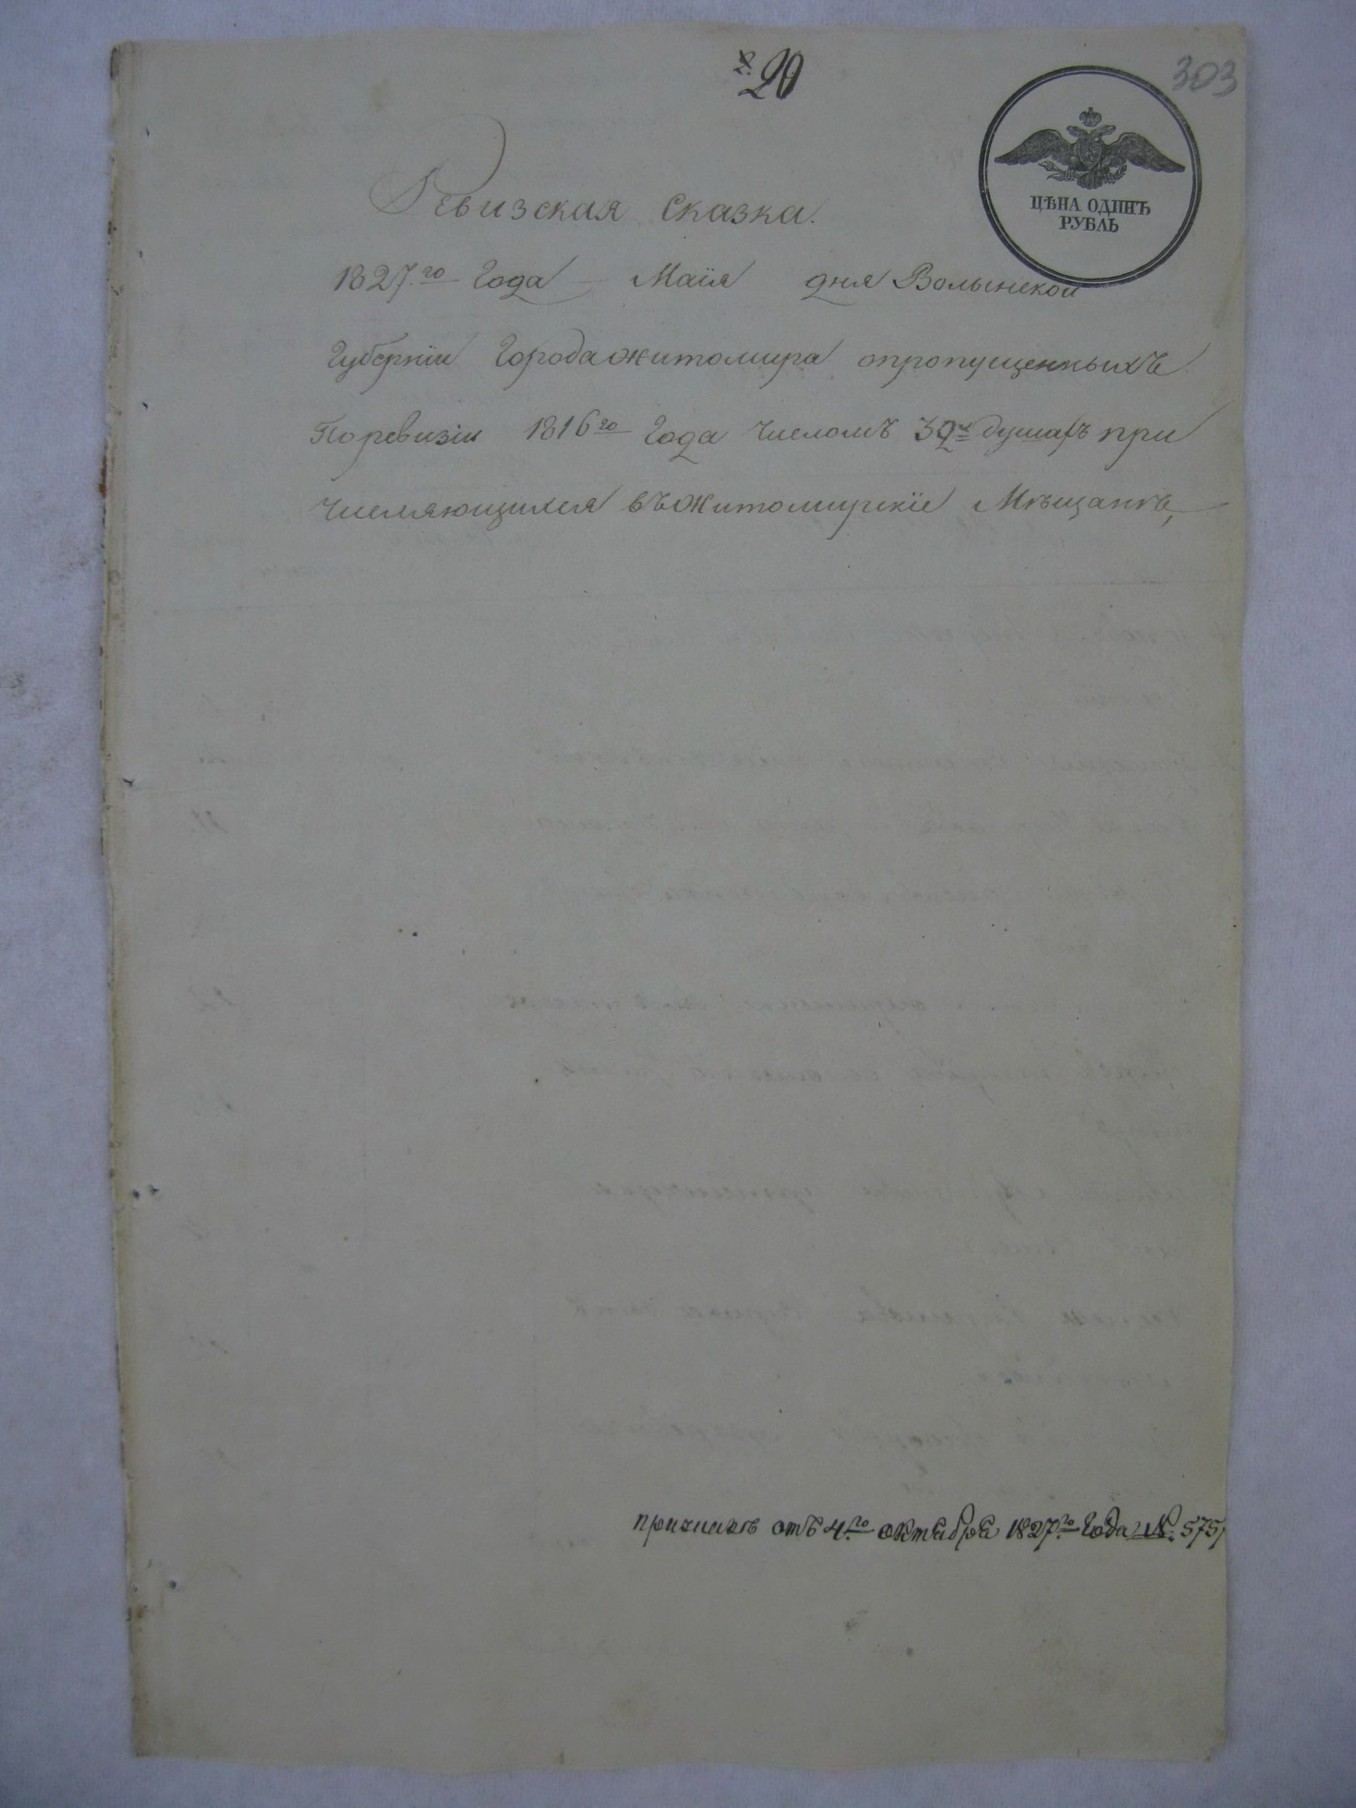 20
303
ЦѢНА ОДИНЪ
РУБЛЬ
Ревизская Сказка.
1827го Года – Маія дня Волынской
Губерніи Города Житомира опропущенныхъ
Поревизіи 1816го Года числомъ 32хъ душахъ при
числяющихся въ Житомирскіе Мѣщане,
от 4го октября 1827го Года № 575